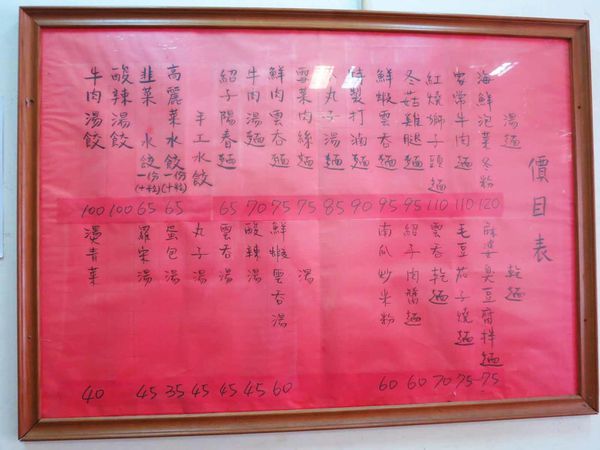 價目表
湯麵
海鮮泡菜冬粉 120
家常牛肉麵 110
紅燒獅子頭麵 110
冬菇雞腿麵 95
鮮蝦雲吞麵 95
特製打滷麵 90
丸子湯麵 85
雪菜肉絲麵 75
鮮肉雲吞麵 75
牛肉湯麵 70
紹子陽春麵 65
手工水餃
高麗菜水餃一份(十粒) 65
韭菜水餃一份(十粒) 65
酸辣湯餃 100
牛肉湯餃 100
乾麵
麻婆臭豆腐拌麵 75
毛豆茄子燒麵 75
雲吞乾麵 70
紹子肉醬麵 60
南瓜炒米粉 60
湯
鮮蝦雲吞湯 60
酸辣湯 45
雲吞湯 45
丸子湯 45
蛋包湯 35
羅宋湯 45
燙青菜 40